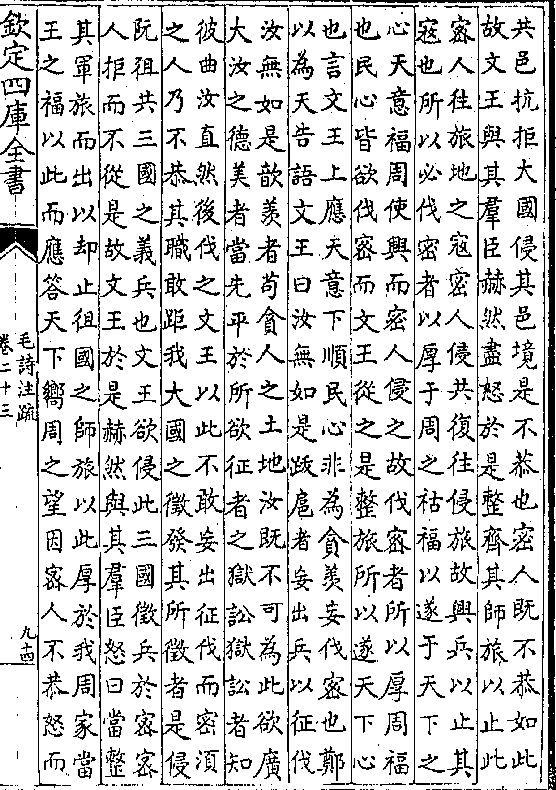 共邑抗拒大國侵其邑境是不恭也密人既不恭如此
故文王與其羣臣赫然盡怒於是整齊其師旅以止此
密人往旅地之寇密人侵共復往侵旅故興兵以止其
寇也所以必伐密者以厚于周之祜福以遂于天下之
心天意福周使興而密人侵之故伐密者所以厚周福
也民心皆欲伐密而文王從之是整旅所以遂天下心
也言文王上應天意下順民心非為貪羡妄伐密也鄭
以為天告語文王曰汝無如是跋扈者妄出兵以征伐
汝無如是歆羨者苟貪人之土地汝既不可為此欲廣
大汝之德美者當先平於所欲征者之獄訟獄訟者知
彼曲汝直然後伐之文王以此不敢妄出征伐而密湏
之人乃不恭其職敢距我大國之徵發其所徵者是侵
阮徂共三國之義兵也文王欲侵此三國徵兵於密密
人拒而不從是故文王於是赫然與其羣臣怒曰當整
其軍旅而出以却止徂國之師旅以此厚於我周家當
王之福以此而應答天下嚮周之望因密人不恭怒而
欽定四庫全書
毛詩注疏
卷二十三
九十四